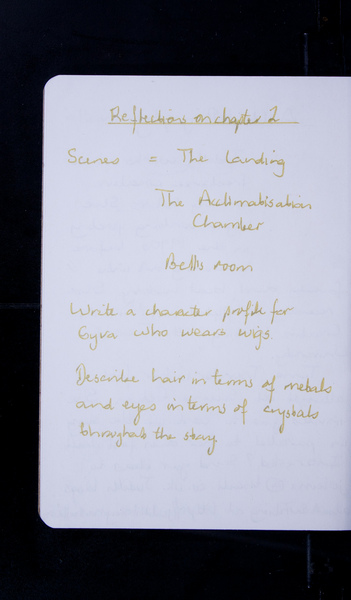 Reflections on chapter 2
Scenes = The Landing
The Acclimatisation
Chamber
Bellis room
Write a character profile for
Gyva who wears wigs.
Describe hair in terms of metals
and eyes in terms of crystals
the story